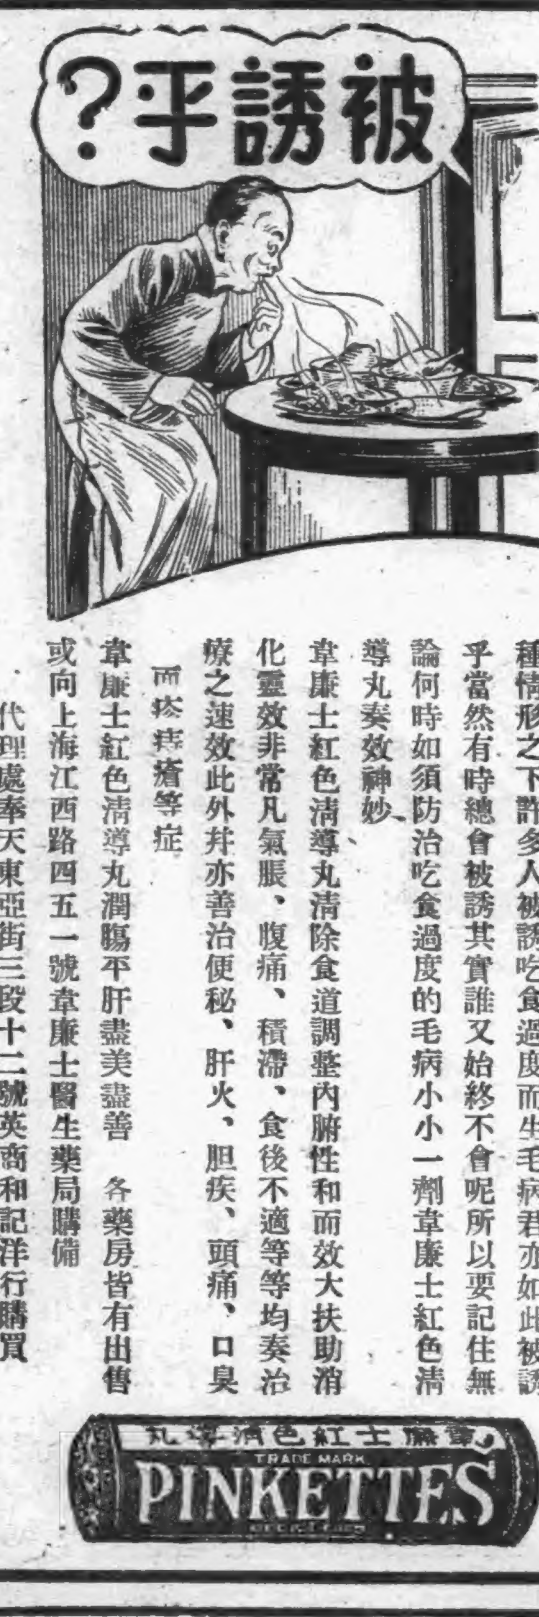 被誘乎？
種情形之下許多人被誘吃食過度而生毛病君亦如此被誘
乎當然有時總會被誘其實誰又始終不會呢所以要記住無
論何時如須防治吃食過度的毛病小小一劑韋廉士紅色清
導丸奏效神妙、
韋廉士紅色清導丸清除食道調整內腑性和而效大扶助消
化靈效非常凡氣脹、腹痛、積滯、食後不適等等均奏治
療之速效此外幷亦善治便秘、肝火、胆疾、頭痛、口臭
面疹痔瘡等症
韋廉士紅色清導丸潤腸平肝盡美盡善　各藥房皆有出售
或向上海江西路四五一號韋廉士醫生藥局購備
代理處奉天東亞街三段十二號英商和記洋行購買
韋廉士紅色清導丸
TRADE MARK
PINKETTES